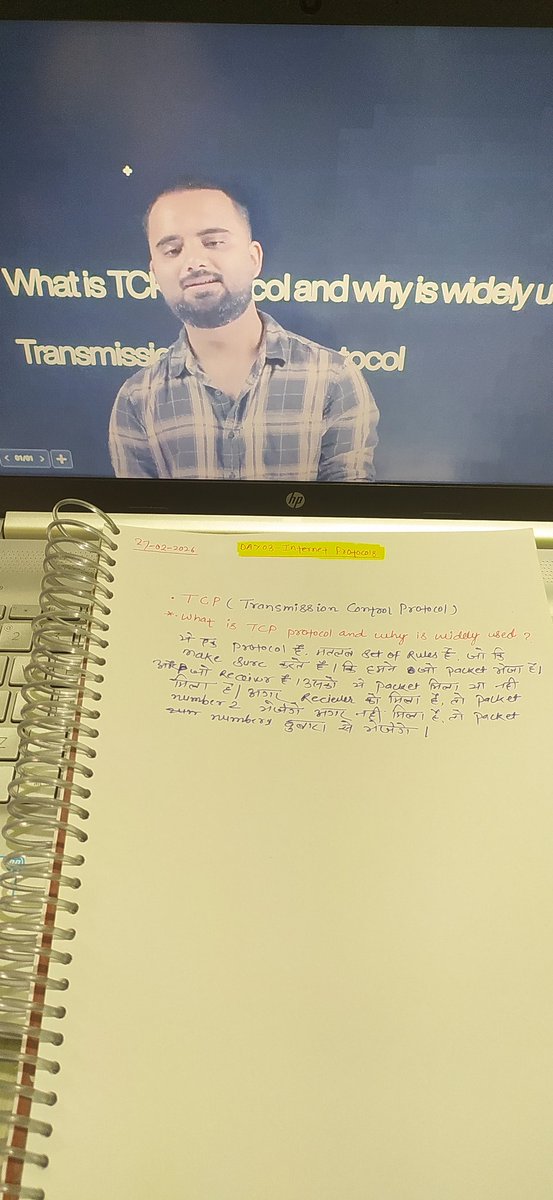 What is TCP col and why is widely u
Transmissio tocol
01/01
hp
27-02-2026
DAY 03 - Internet Protocols
• TCP ( Transmission Control Protocol )
* What is TCP protocol and why is widely used ?
ये एक Protocol है, मतलब Set of Rules है, जो कि
make Sure करते है। कि हमने जो packet भेजा है।
और जो Receiver है। उसको ये packet मिला या नही
मिला है। अगर Reciever को मिला है, तो packet
number 2 भेजेगे अगर नही मिला है, तो packet
number 1 दुबारा से भेजेगे।